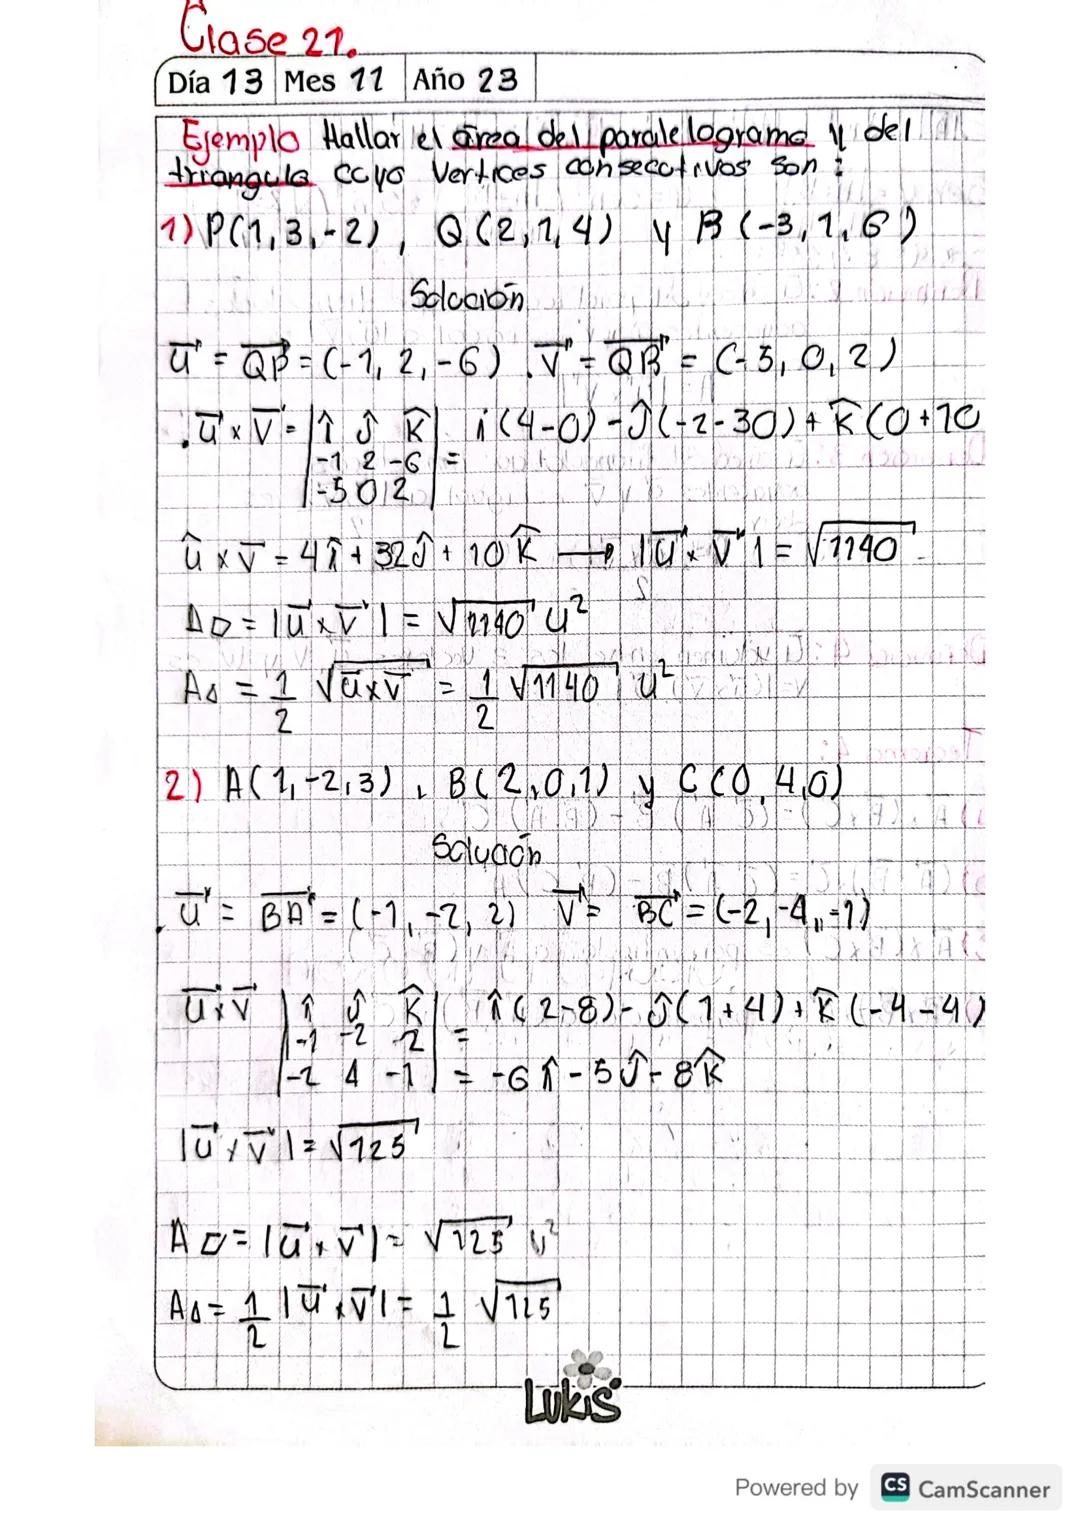 Clase 21.
Día 13 Mes 11 Año 23
Ejemplo Hallar el área del paralelogramo y del
triangulo cuyo vertices consecutivos son :
1) P(1,3,-2), Q(2,1,4) y R(-3,1,6)
Solución
u = QP = (-1, 2, -6) . v = QR = (-5, 0, 2)
. u x v = | î ĵ k̂ | i(4-0) - ĵ(-2-30) + k̂(0+10
| -1 2 -6 | =
| -5 0 2 |
û x v = 4î + 32ĵ + 10k̂ → |u x v| = √1140
A▱ = |u x v| = √1140 u²
A△ = 1/2 √u x v = 1/2 √1140 u²
2) A(1,-2,3), B(2,0,1) y C(0,4,0)
Solución
. u = BA = (-1, -2, 2) v = BC = (-2, -4, -1)
u x v | î ĵ k̂ | = î(2-8) - ĵ(1+4) + k̂(-4-4)
| -1 -2 2 | =
| -2 4 -1 | = -6î - 5ĵ - 8k̂
|u x v| = √125
A▱ = |u x v| = √125 u²
A△ = 1/2 |u x v| = 1/2 √125
Lukis
Powered by CS CamScanner